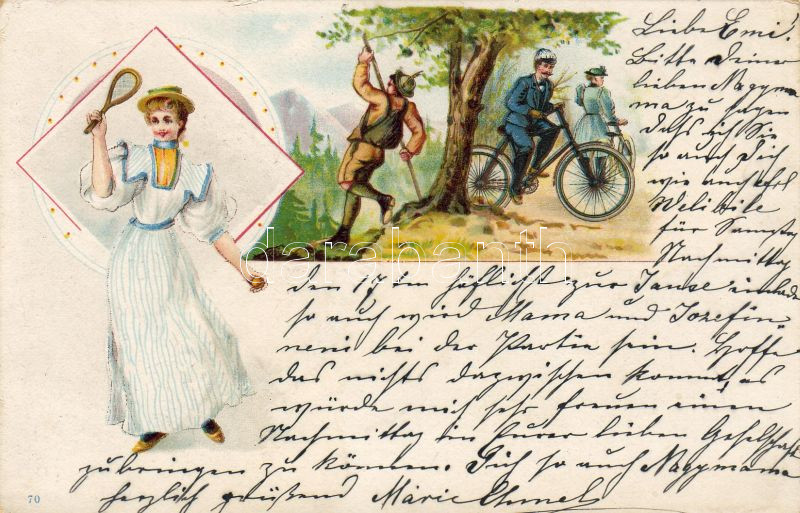 Liebe Emi!
Bitte deiner
lieben Nagyma-
ma zu sagen
dass ich Sie
so auch Dich
wie auch
für Samstag
Nachmittag
den 17ten höflichst zur Jause einlade
so auch wird Mama und Josefin
neni bei der Partie sein. Hoffe
das nichts dazwischen kommt, es
würde mich sehr freuen einen
Nachmittag in Eurer lieben Gesellschaft
zubringen zu können. Dich so auch Nagymama
herzlich grüßend Marie
darabanth
70